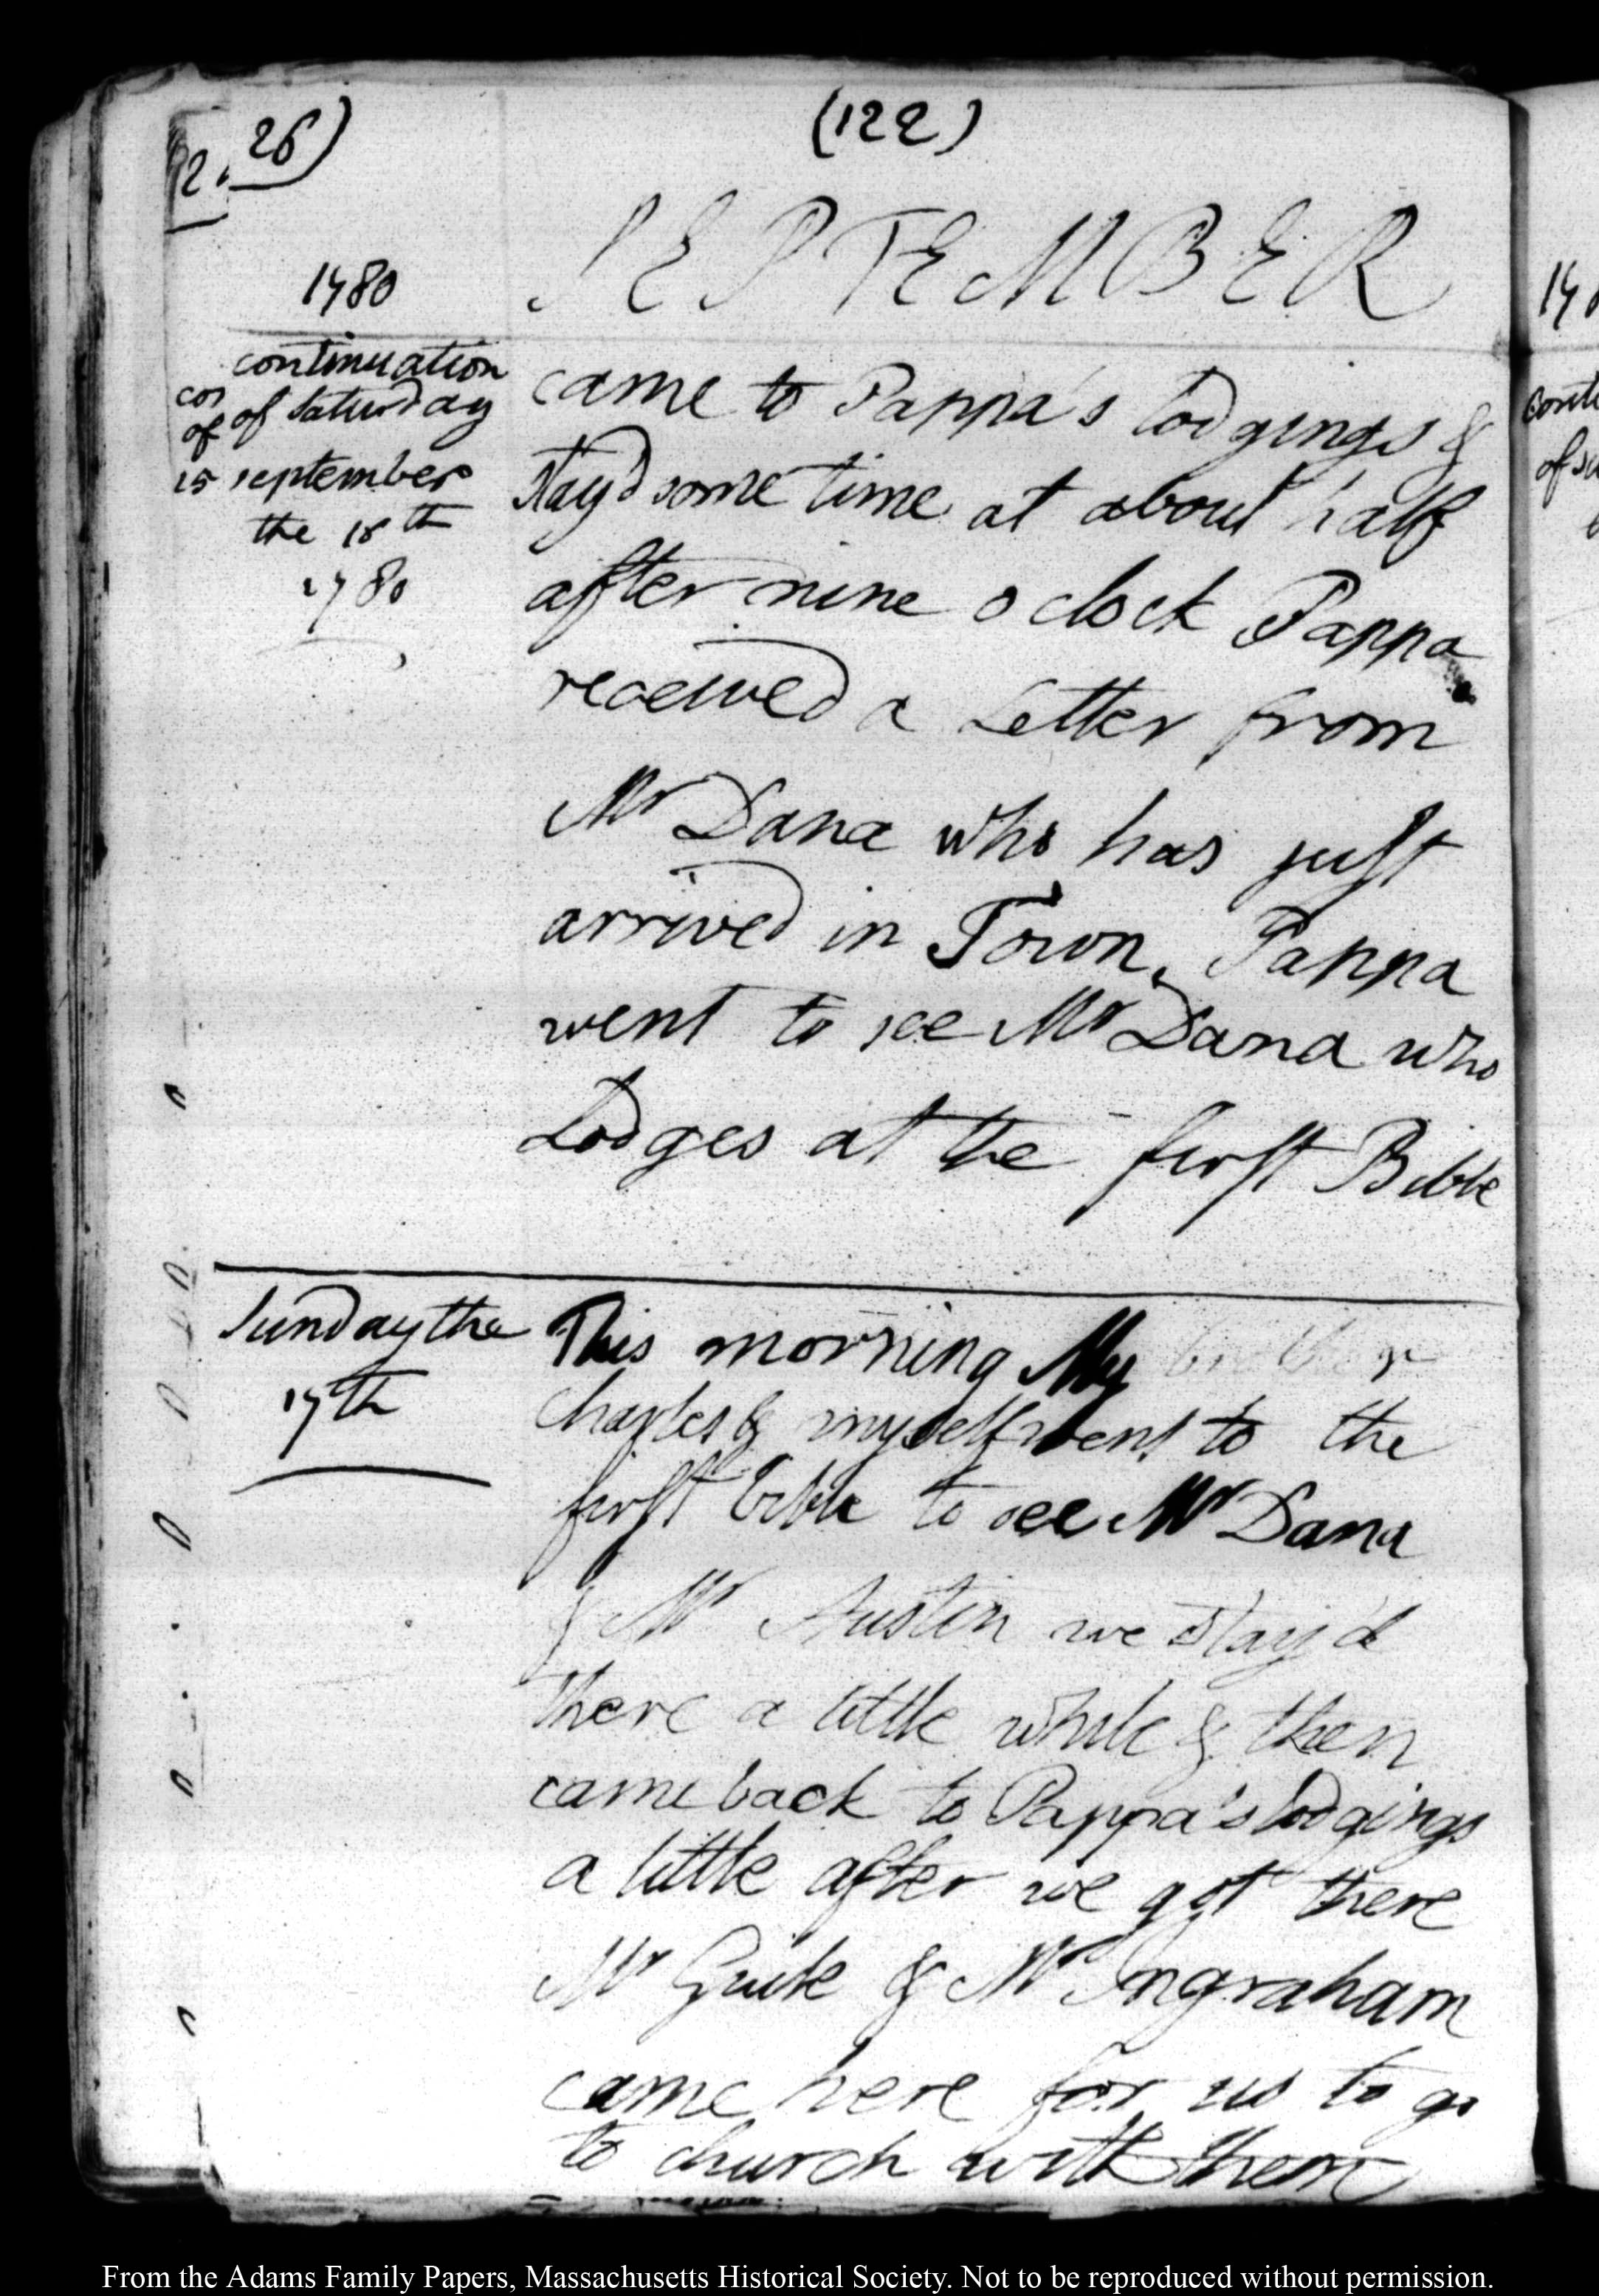 26)
(122)
2
1780
SEPTEMBER
continuation
of Saturday
september
the 16th
1780
con
of
15
came to Pappa's lodgings &
stay'd some time at about half
after nine o clock Pappa
received a Letter from
Mr Dana who has just
arrived in Town, Pappa
went to see Mr Dana who
Lodges at the first Bible
Sunday the
17th
This morning My brother
Charles & myself went to the
first bible to see Mr Dana
& Mr Austin we stay'd
there a little while & then
came back to Pappa's lodgings
a little after we got there
Mr Guile & Mr Ingraham
came here for us to go
to church with them
From the Adams Family Papers, Massachusetts Historical Society. Not to be reproduced without permission.